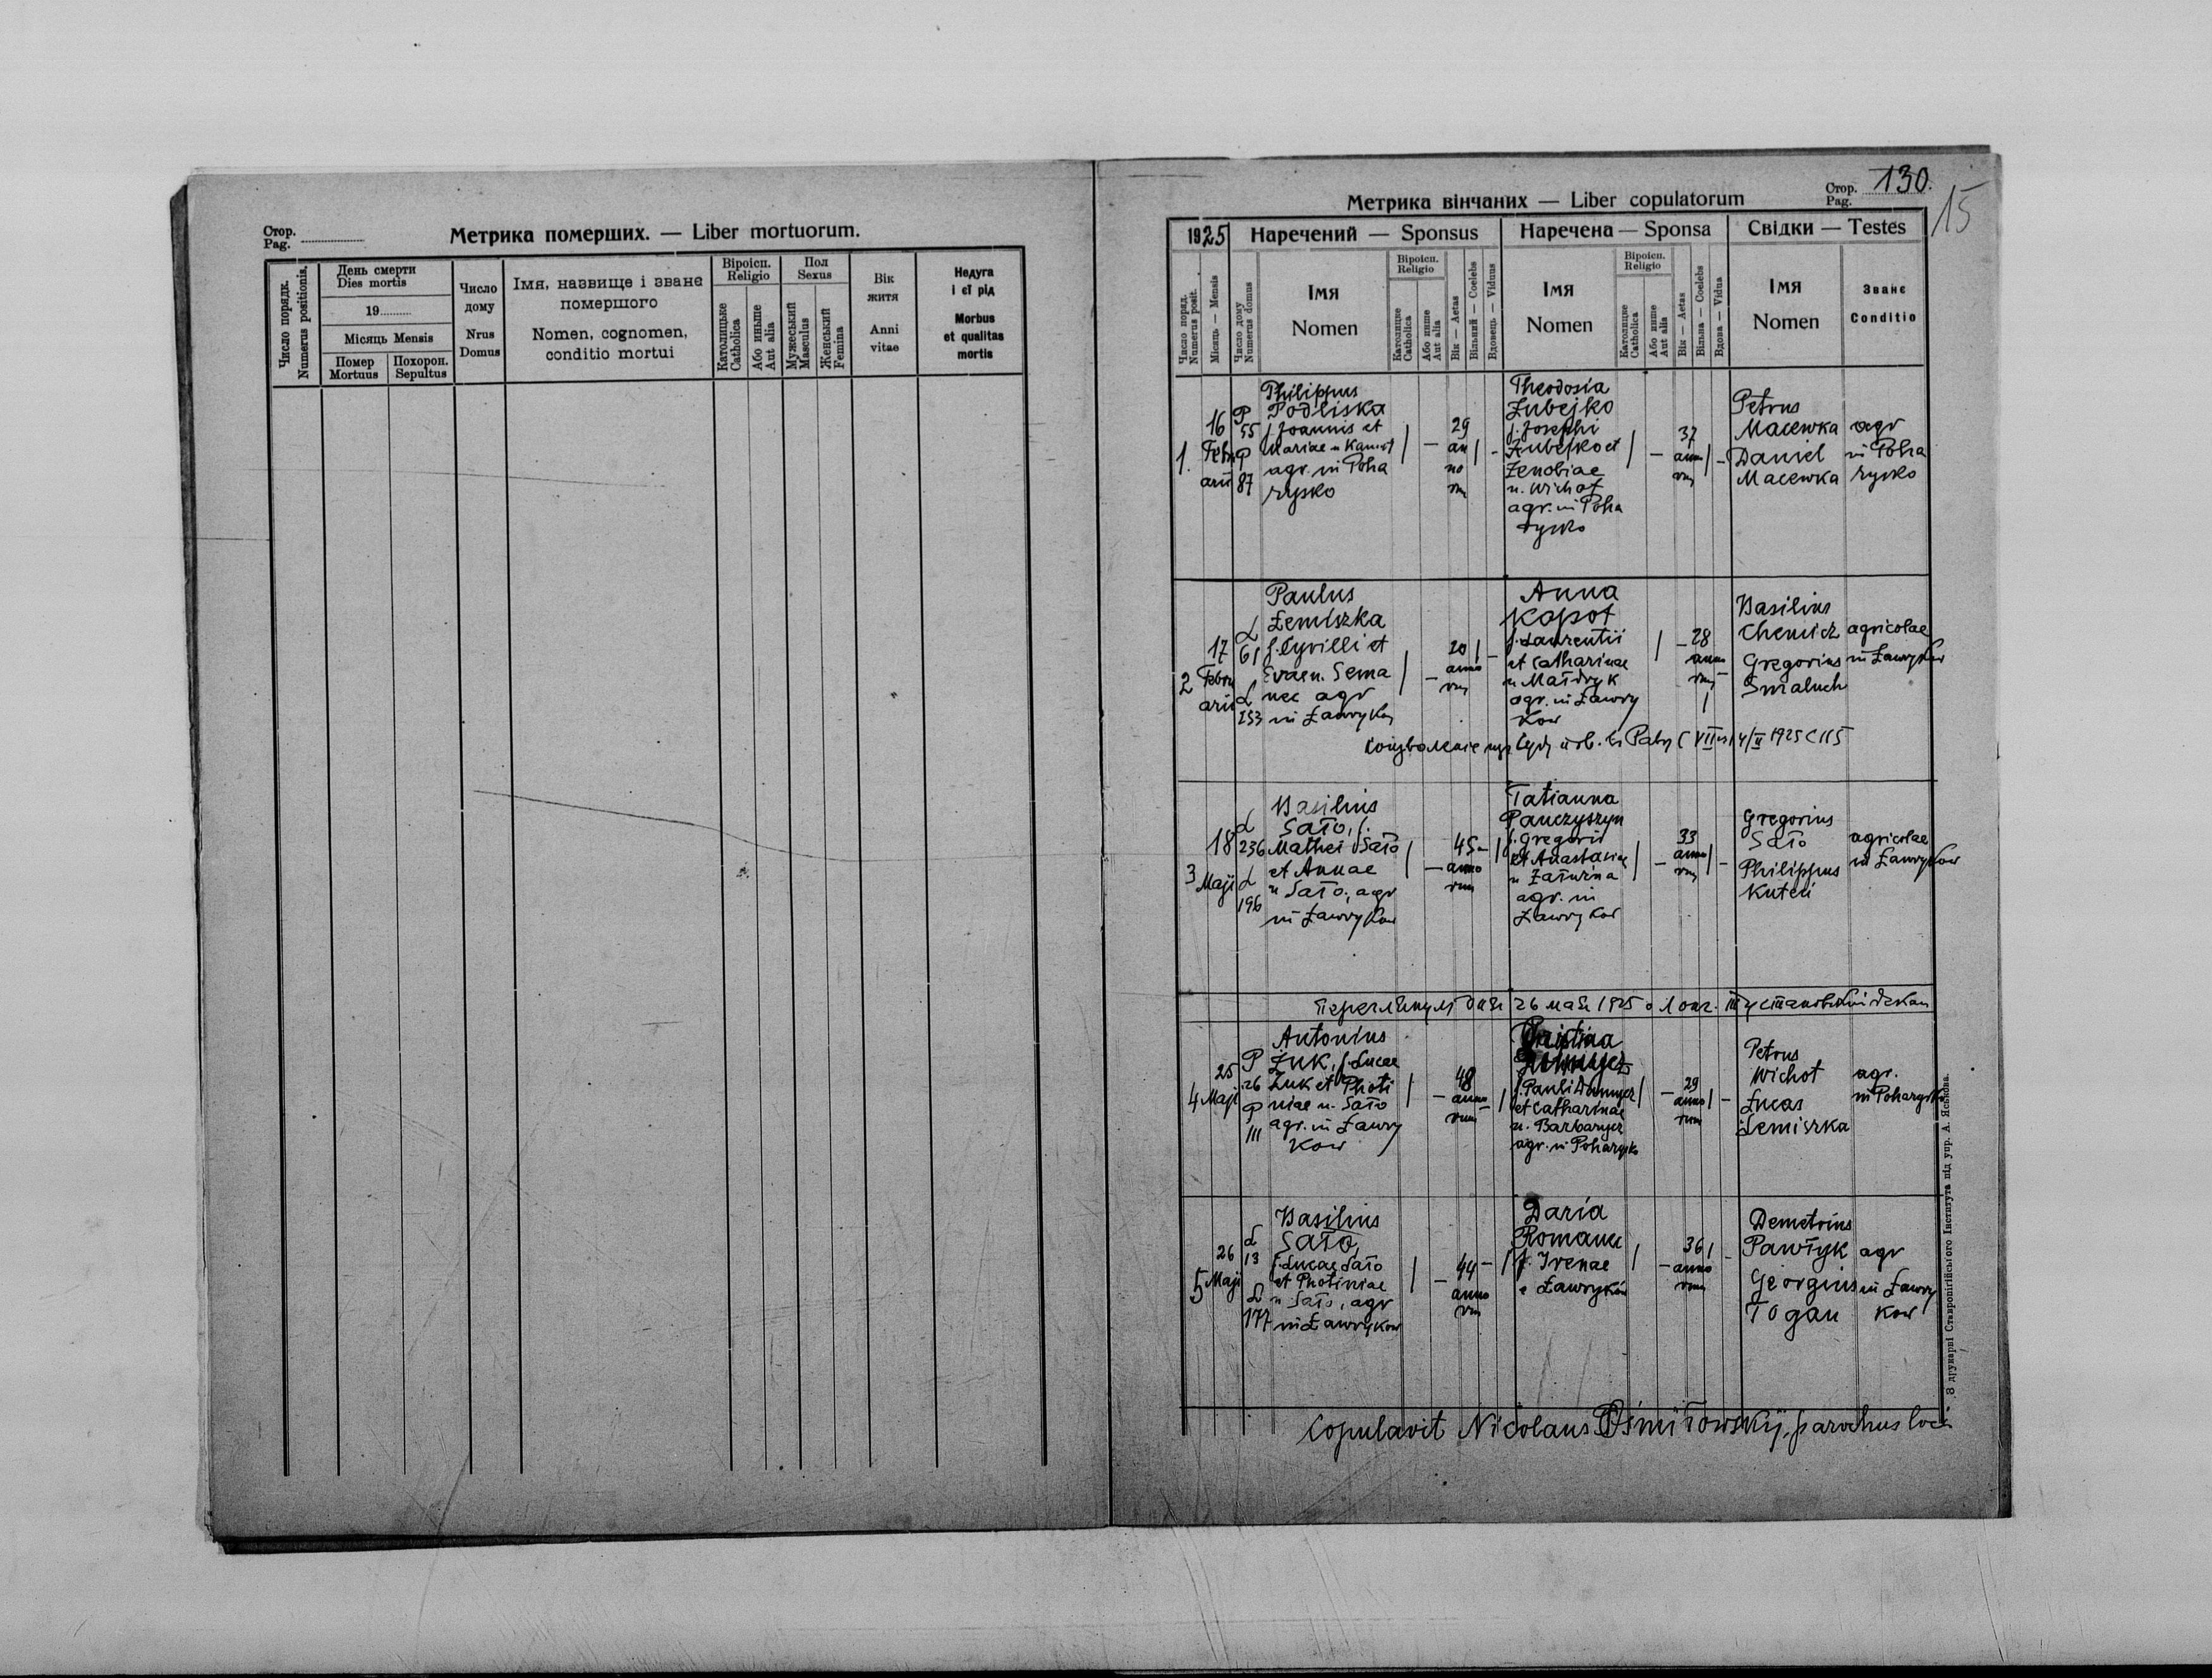 Стор.
Pag.
Метрика померших. — Liber mortuorum.
Число порядк.
Numerus positionis.
День смерти
Dies mortis
19
Місяць Mensis
Помер
Mortuus
Похорон.
Sepultus
Число
дому
Nrus
Domus
Імя, назвище і зване
помершого
Nomen, cognomen,
conditio mortui
Віроісп.
Religio
Католицке
Catholica
Або иньше
Aut alia
Пол
Sexus
Мужеський
Masculus
Женський
Femina
Вік
житя
Anni
vitae
Недуга
і єї рід
Morbus
et qualitas
mortis
Метрика вінчаних — Liber copulatorum
Стор.
Pag.
130.
15
1925
Наречений — Sponsus
Наречена — Sponsa
Свідки — Testes
Число поряд.
Numerus posit.
Місяць — Mensis
Число дому
Numerus domus
Імя
Nomen
Віроісп.
Religio
Католицке
Catholica
Або инше
Aut alia
Вік — Aetas
Вільний — Coelebs
Вдовець — Viduus
Імя
Nomen
Віроісп.
Religio
Католицке
Catholica
Або инше
Aut alia
Вік — Aetas
Вільна — Coelebs
Вдова — Vidua
Імя
Nomen
Званє
Conditio
1.
16
Febru
arii
P
55
P
87
Philippus
Podliska
f. Joannis et
Mariae n
agr. in Poha
rysko
29
an
no
rum
Theodosia
Zubejko
f. Josephi
Zubejko et
Zenobiae
n. Wichot
agr. in Poha
rysko
37
anno
rum
Petrus
Macewka
Daniel
Macewka
agr
in Poha
rysko
2
17
Febru
arii
Ł
61
Ł
153
Paulus
Łemiszka
f. Cyrilli et
Evae n. Sema
nec agr
in Ławrykow
20
anno
rum
Anna
Kopot
f. Laurentii
et Catharinae
n Matdryk
agr. in Ławry
kow
28
anno
rum
Basilius
Chemicz
Gregorius
Smaluch
agricolae
in Ławrykow
1925
3
18
Maji
Ł
236
Ł
196
Basilius
Sało, f.
Mathei Sało
et Annae
n Sało, agr
in Ławrykow
45
anno
rum
Tatianna
Panczyszyn
f. Gregorii
et Anastasiae
n Zaturina
agr. in
Ławrykow
33
anno
rum
Gregorius
Sało
Philippus
Kuteń
agricolae
in Ławrykow
дня 26 мая 1925
4
25
Maji
P
26
P
111
Antonius
Żuk, f. Lucae
Żuk et Photi
niae n. Sało
agr. in Ławry
kow
48
anno
rum
Christina
f. Pauli
et Catharinae
n. Barbarycz
agr. in Poharysko
29
anno
rum
Petrus
Wichot
Lucas
Łemiszka
agr.
in Poharysko
5
26
Maji
Ł
13
Ł
177
Basilius
Sało,
f. Lucae Sało
et Photiniae
n Sało, agr
in Ławrykow
44
anno
rum
Daria
Romanec
f. Irenae
e Ławryków
36
anno
rum
Demetrius
Pawłyk
Georgius
Togan
agr
in Ławry
kow
Copulavit Nicolaus Dśmiłowskij, parochus loci
З друкарні Ставропігійського Інститута під упр. А. Яськова.